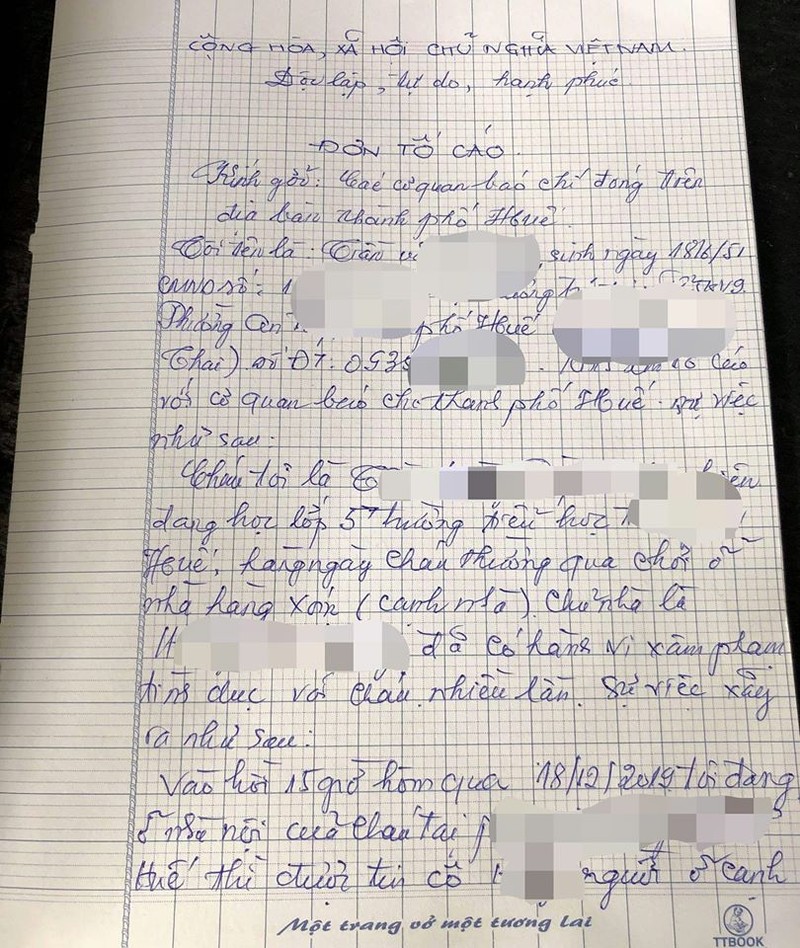 CỘNG HÒA, XÃ HỘI CHỦ NGHĨA VIỆT NAM.
Độc lập, tự do, hạnh phúc.
ĐƠN TỐ CÁO.
Kính gởi: Các cơ quan báo chí đóng trên
địa bàn thành phố Huế.
Tôi tên là: Trần sinh ngày 18/6/51
CMND số: 1
Phường An phố Huế
Thai) số ĐT. 0935 cáo
với cơ quan báo chí thành phố Huế. sự việc
như sau:
Cháu tôi là
đang học lớp 5 trường tiểu học
Huế, hàng ngày cháu thường qua chơi ở
nhà hàng xóm (cạnh nhà). Chủ nhà là
H đã có hành vi xâm phạm
tình dục với cháu nhiều lần. Sự việc xẩy
ra như sau:
Vào hồi 15 giờ hôm qua 18/12/2019 tôi đang
ở nhà nội của cháu tại
Huế thì được tin cô người ở cạnh
Một trang vở một tương lai
TTBOOK